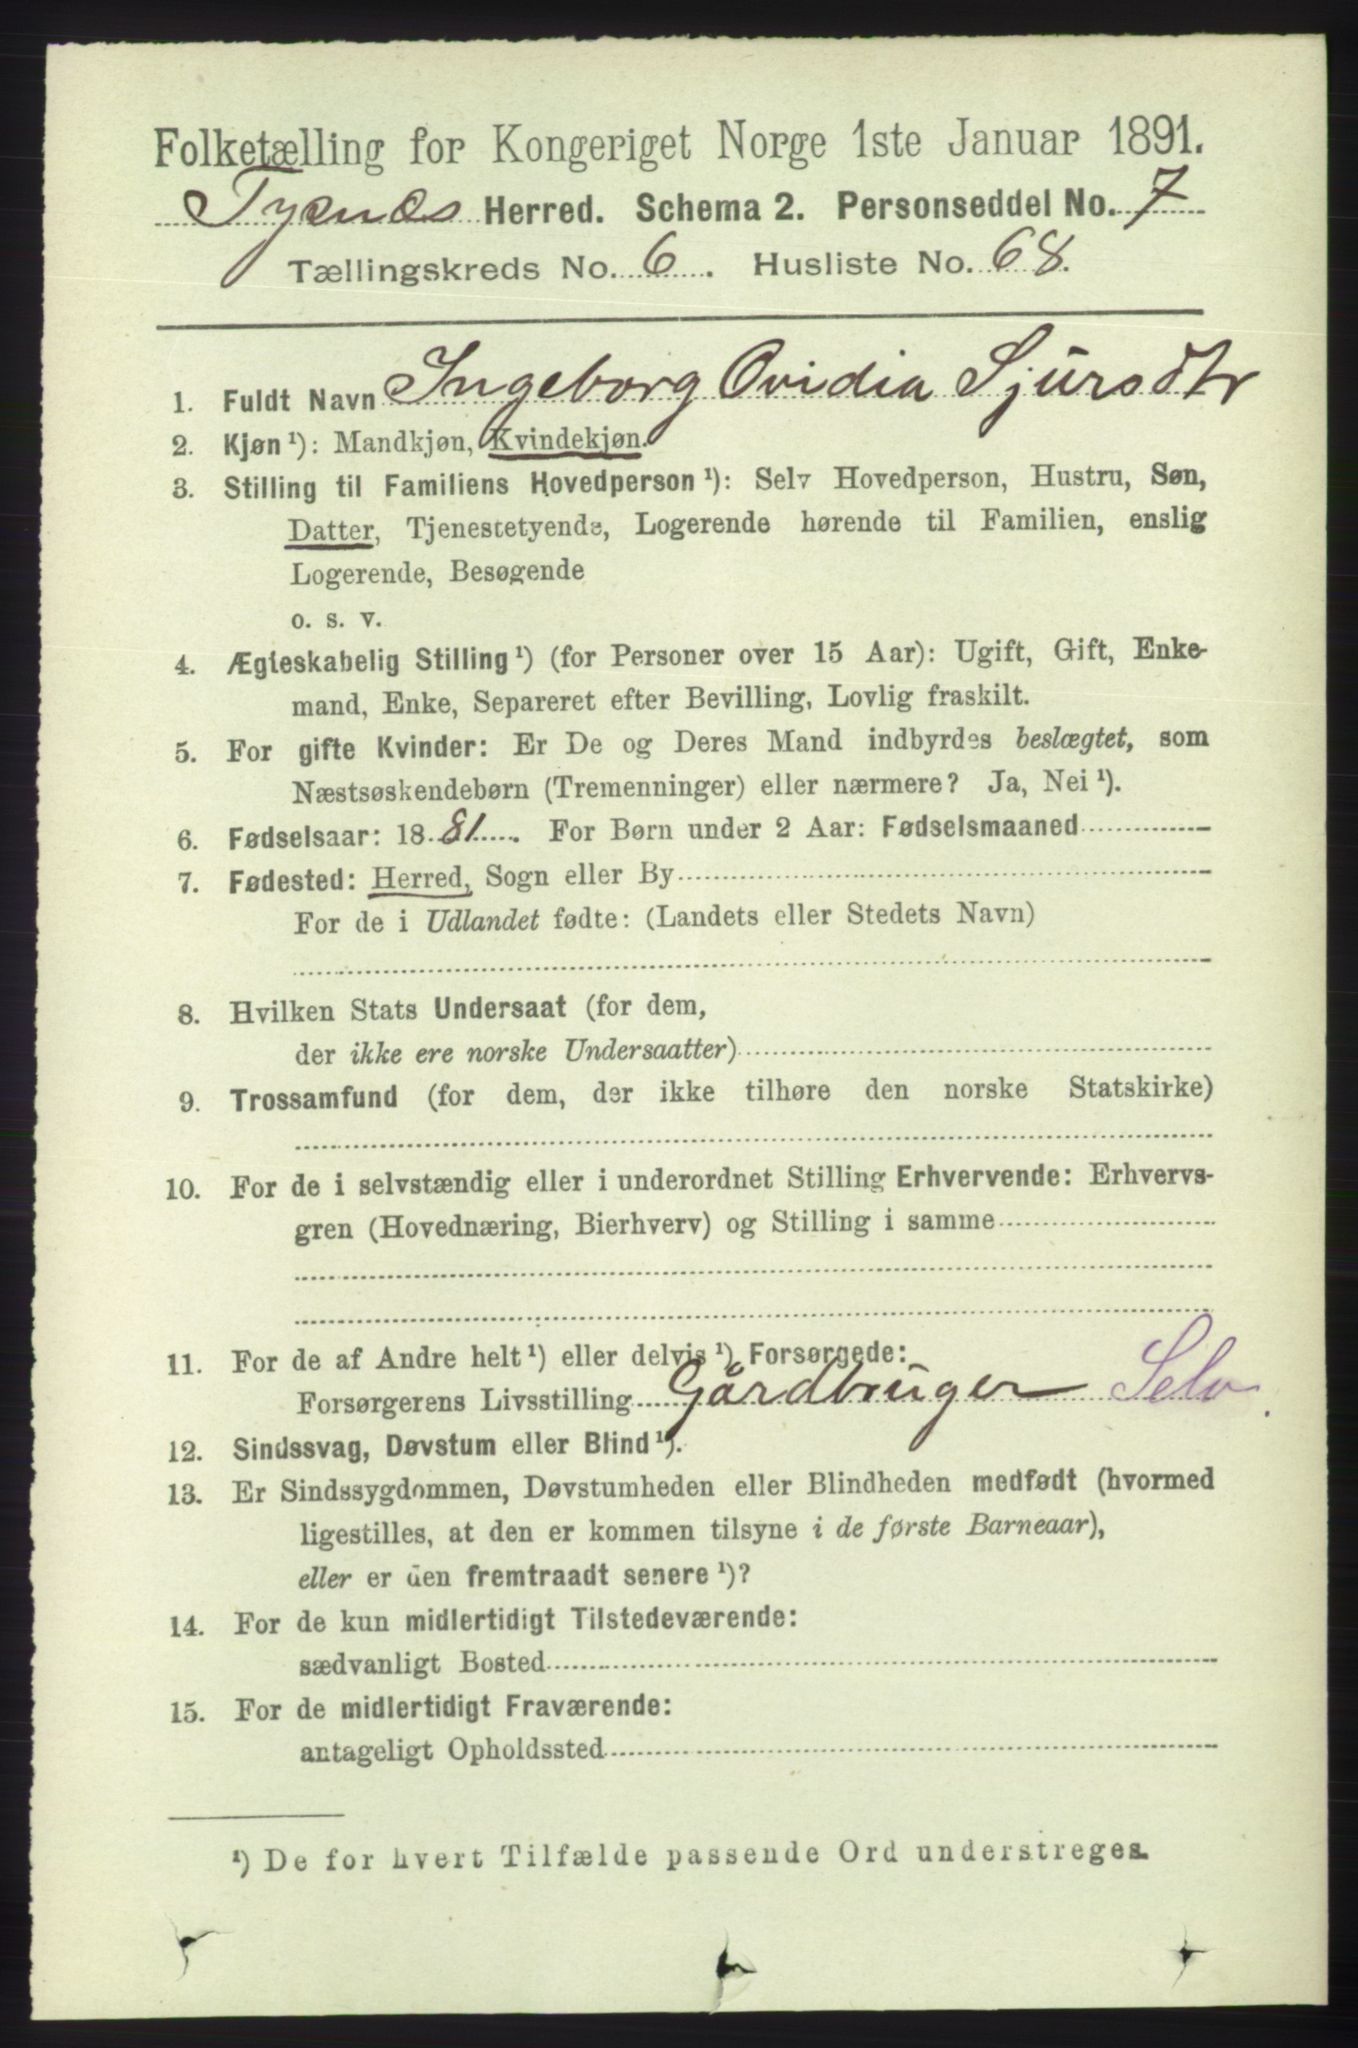 Folketælling for Kongeriget Norge 1ste Januar 1891.
Tysnæs Herred. Schema 2. Personseddel No. 7
Tællingskreds No. 6. Husliste No. 68.
1. Fuldt Navn Ingeborg Ovidia Sjursdtr
2. Kjøn ¹): Mandkjøn, Kvindekjøn.
3. Stilling til Familiens Hovedperson ¹): Selv Hovedperson, Hustru, Søn,
Datter, Tjenestetyende, Logerende hørende til Familien, enslig
Logerende, Besøgende
o. s. v.
4. Ægteskabelig Stilling ¹) (for Personer over 15 Aar): Ugift, Gift, Enke-
mand, Enke, Separeret efter Bevilling, Lovlig fraskilt.
5. For gifte Kvinder: Er De og Deres Mand indbyrdes beslægtet, som
Næstsøskendebørn (Tremenninger) eller nærmere? Ja, Nei ¹).
6. Fødselsaar: 1881. For Børn under 2 Aar: Fødselsmaaned
7. Fødested: Herred, Sogn eller By
For de i Udlandet fødte: (Landets eller Stedets Navn)
8. Hvilken Stats Undersaat (for dem,
der ikke ere norske Undersaatter)
9. Trossamfund (for dem, der ikke tilhøre den norske Statskirke)
10. For de i selvstændig eller i underordnet Stilling Erhvervende: Erhvervs-
gren (Hovednæring, Bierhverv) og Stilling i samme
11. For de af Andre helt ¹) eller delvis ¹) Forsørgede:
Forsørgerens Livsstilling Gårdbruger Selv
12. Sindssvag, Døvstum eller Blind ¹).
13. Er Sindssygdommen, Døvstumheden eller Blindheden medfødt (hvormed
ligestilles, at den er kommen tilsyne i de første Barneaar),
eller er den fremtraadt senere ¹)?
14. For de kun midlertidigt Tilstedeværende:
sædvanligt Bosted
15. For de midlertidigt Fraværende:
antageligt Opholdssted
¹) De for hvert Tilfælde passende Ord understreges.